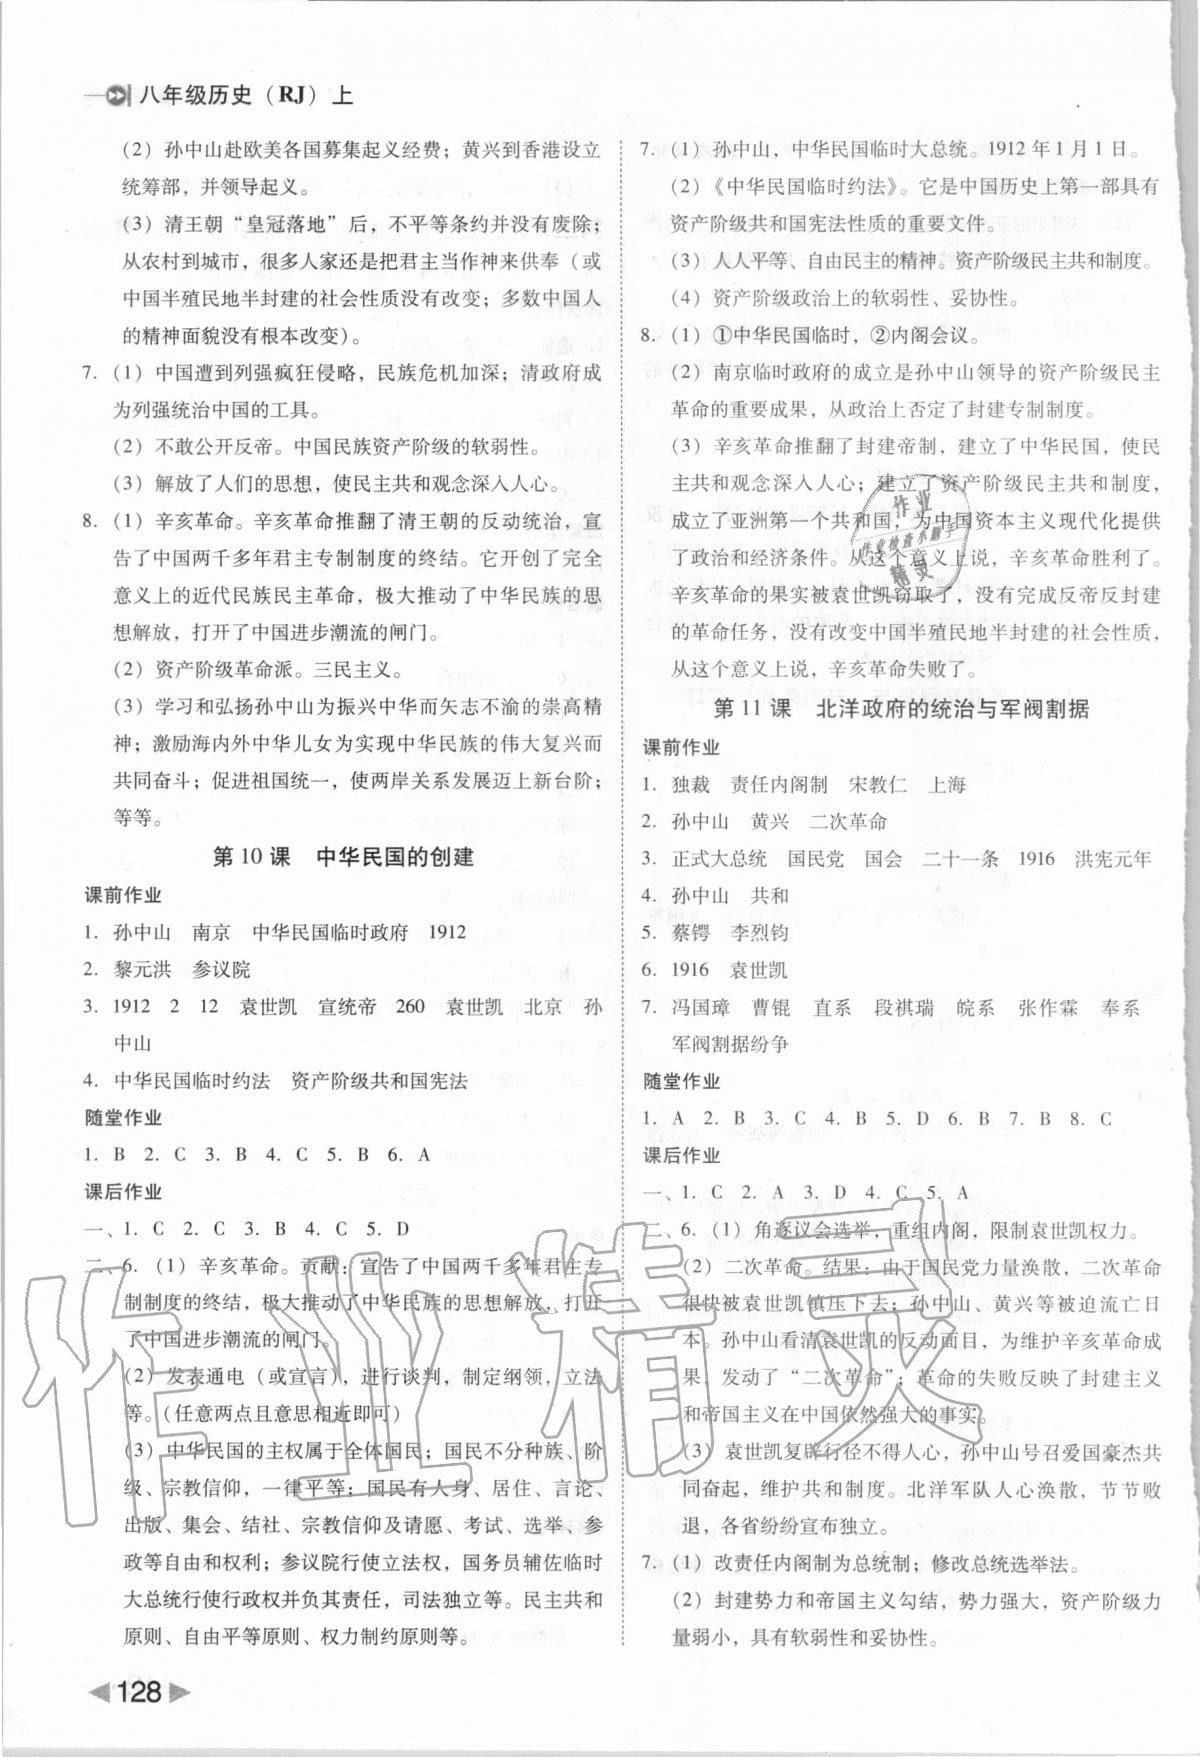 八年级历史（RJ）上
（2）孙中山赴欧美各国募集起义经费；黄兴到香港设立
统筹部，并领导起义。
（3）清王朝“皇冠落地”后，不平等条约并没有废除；
从农村到城市，很多人家还是把君主当作神来供奉（或
中国半殖民地半封建的社会性质没有改变；多数中国人
的精神面貌没有根本改变）。
7.（1）中国遭到列强疯狂侵略，民族危机加深；清政府成
为列强统治中国的工具。
（2）不敢公开反帝。中国民族资产阶级的软弱性。
（3）解放了人们的思想，使民主共和观念深入人心。
8.（1）辛亥革命。辛亥革命推翻了清王朝的反动统治，宣
告了中国两千多年君主专制制度的终结。它开创了完全
意义上的近代民族民主革命，极大推动了中华民族的思
想解放，打开了中国进步潮流的闸门。
（2）资产阶级革命派。三民主义。
（3）学习和弘扬孙中山为振兴中华而矢志不渝的崇高精
神；激励海内外中华儿女为实现中华民族的伟大复兴而
共同奋斗；促进祖国统一，使两岸关系发展迈上新台阶；
等等。
第 10 课　中华民国的创建
课前作业
1. 孙中山　南京　中华民国临时政府　1912
2. 黎元洪　参议院
3. 1912　2　12　袁世凯　宣统帝　260　袁世凯　北京　孙
中山
4. 中华民国临时约法　资产阶级共和国宪法
随堂作业
1. B　2. C　3. B　4. C　5. B　6. A
课后作业
一、1. C　2. C　3. B　4. C　5. D
二、6.（1）辛亥革命。贡献：宣告了中国两千多年君主专
制制度的终结，极大推动了中华民族的思想解放，打开
了中国进步潮流的闸门。
（2）发表通电（或宣言），进行谈判，制定纲领，立法
等。（任意两点且意思相近即可）
（3）中华民国的主权属于全体国民；国民不分种族、阶
级、宗教信仰，一律平等；国民有人身、居住、言论、
出版、集会、结社、宗教信仰及请愿、考试、选举、参
政等自由和权利；参议院行使立法权，国务员辅佐临时
大总统行使行政权并负其责任，司法独立等。民主共和
原则、自由平等原则、权力制约原则等。
128
7.（1）孙中山，中华民国临时大总统。1912 年 1 月 1 日。
（2）《中华民国临时约法》。它是中国历史上第一部具有
资产阶级共和国宪法性质的重要文件。
（3）人人平等、自由民主的精神。资产阶级民主共和制度。
（4）资产阶级政治上的软弱性、妥协性。
8.（1）①中华民国临时，②内阁会议。
（2）南京临时政府的成立是孙中山领导的资产阶级民主
革命的重要成果，从政治上否定了封建专制制度。
（3）辛亥革命推翻了封建帝制，建立了中华民国，使民
主共和观念深入人心；建立了资产阶级民主共和制度，
成立了亚洲第一个共和国，为中国资本主义现代化提供
了政治和经济条件。从这个意义上说，辛亥革命胜利了。
辛亥革命的果实被袁世凯窃取了，没有完成反帝反封建
的革命任务，没有改变中国半殖民地半封建的社会性质，
从这个意义上说，辛亥革命失败了。
第 11 课　北洋政府的统治与军阀割据
课前作业
1. 独裁　责任内阁制　宋教仁　上海
2. 孙中山　黄兴　二次革命
3. 正式大总统　国民党　国会　二十一条　1916　洪宪元年
4. 孙中山　共和
5. 蔡锷　李烈钧
6. 1916　袁世凯
7. 冯国璋　曹锟　直系　段祺瑞　皖系　张作霖　奉系
军阀割据纷争
随堂作业
1. A　2. B　3. C　4. B　5. D　6. B　7. B　8. C
课后作业
一、1. C　2. A　3. D　4. C　5. A
二、6.（1）角逐议会选举，重组内阁，限制袁世凯权力。
（2）二次革命。结果：由于国民党力量涣散，二次革命
很快被袁世凯镇压下去；孙中山、黄兴等被迫流亡日
本。孙中山看清袁世凯的反动面目，为维护辛亥革命成
果，发动了“二次革命”；革命的失败反映了封建主义
和帝国主义在中国依然强大的事实。
（3）袁世凯复辟行径不得人心，孙中山号召爱国豪杰共
同奋起，维护共和制度。北洋军队人心涣散，节节败
退，各省纷纷宣布独立。
7.（1）改责任内阁制为总统制；修改总统选举法。
（2）封建势力和帝国主义勾结，势力强大，资产阶级力
量弱小，具有软弱性和妥协性。
作业
作业检查小助手
精灵
作业精灵